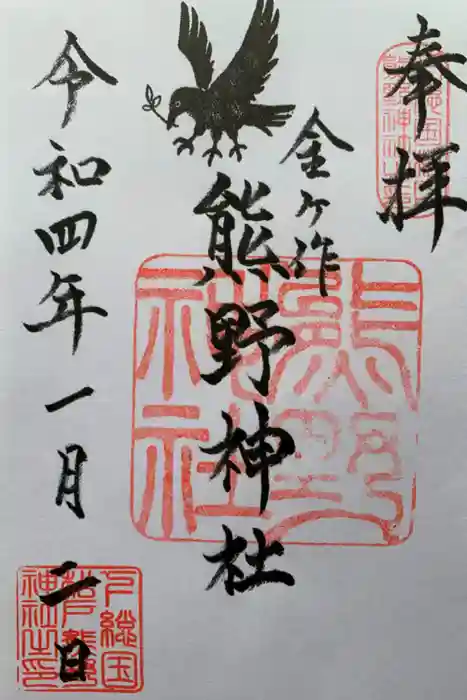 奉拝
金ヶ作
熊野神社
令和四年一月二日
熊野
神社
下総国
松戸熊野
神社之印